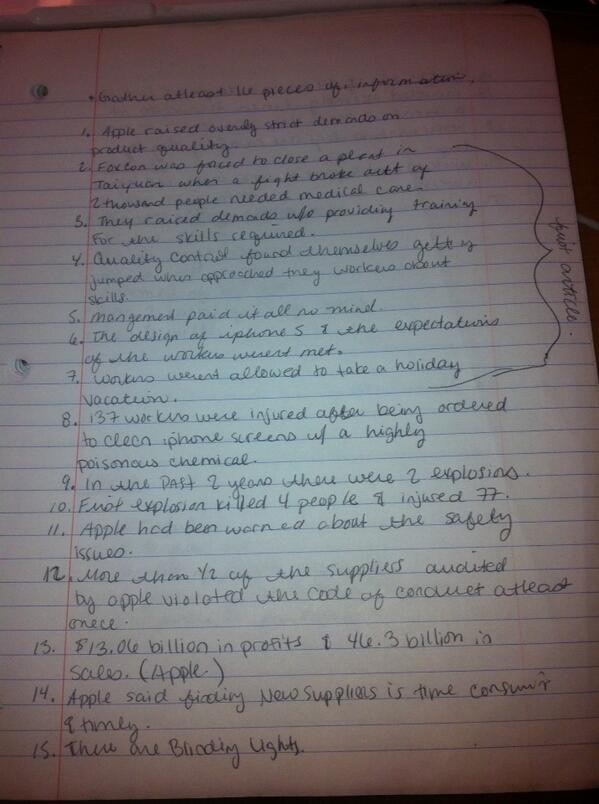 • Gather atleast 16 pieces of information.
1. Apple raised overly strict demands on
product quality.
2. Foxcon was forced to close a plant in
Taiyuan when a fight broke out &
2 thousand people needed medical care.
3. They raised demads w/o providing training
For the skills required.
4. Quality Control found themselves getting
jumped when approached they workers about
skills.
5. Mangement paid it all no mind.
6. The design of iphone 5 & the expectations
of the workers werent met.
7. Workers werent allowed to take a holiday
vacation.
first article.
8. 137 workers were injured after being ordered
to clean iphone screens w/ a highly
poisonous chemical.
9. In the PAST 2 years there were 2 explosions.
10. First explosion killed 4 people & injused 77.
11. Apple had been warned about the safety
issues.
12. More than 1/2 of the suppliers audited
by apple violated the code of conduct atleast
once.
13. $13.06 billion in profits & 46.3 billion in
sales. (Apple.)
14. Apple said finding New suppliers is time consuming
& timely.
15. There are Blinding Lights.